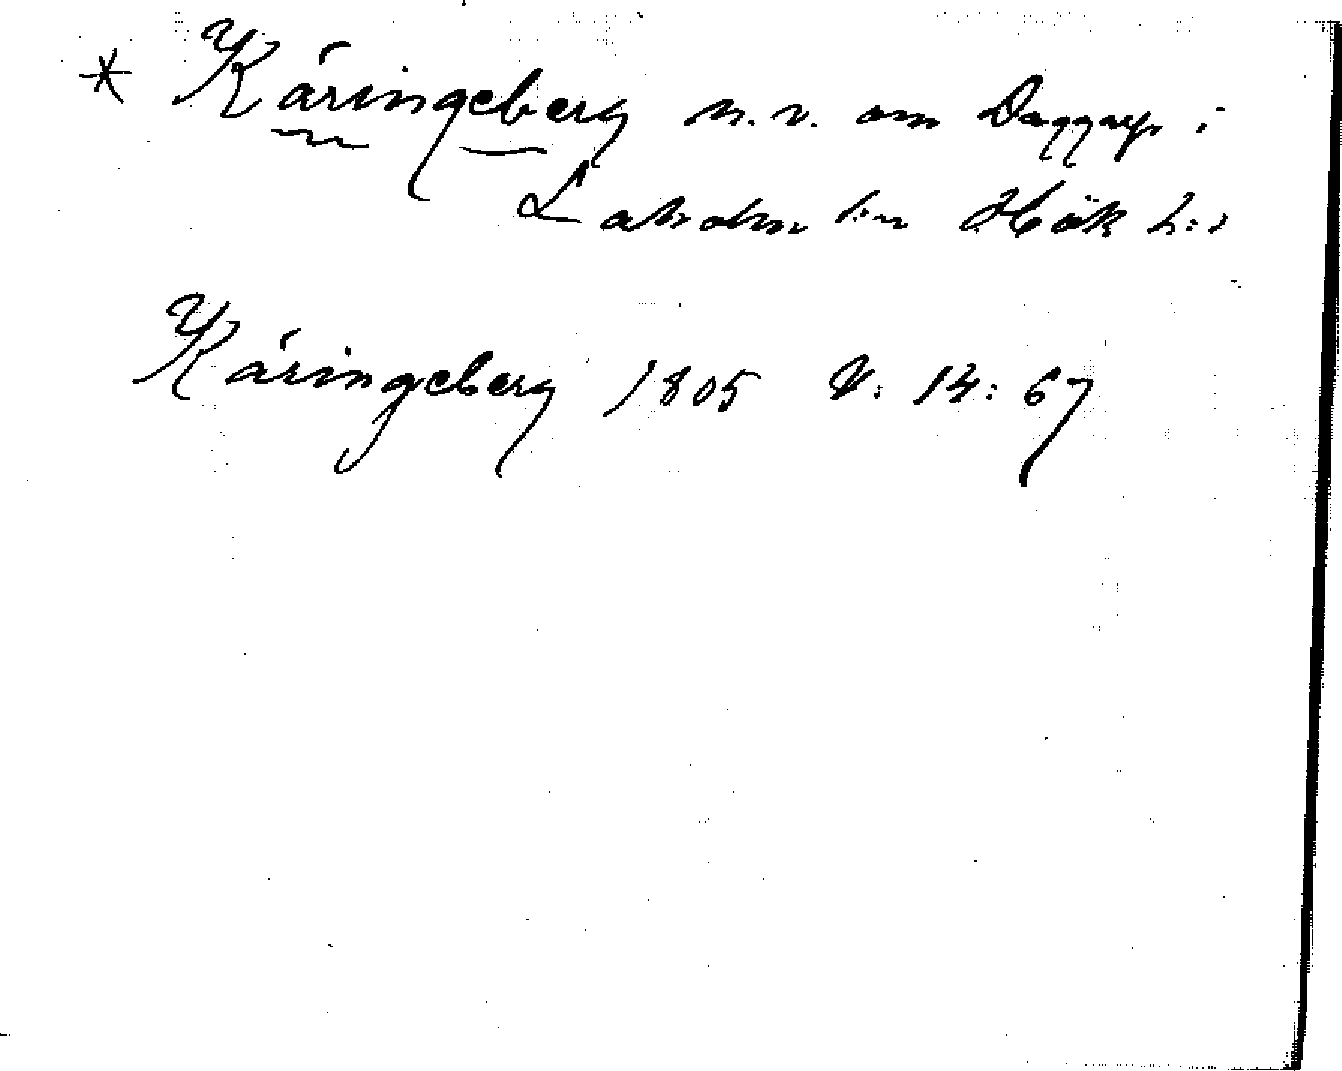 * Käringeberg n. v. om Daggarp i
Laholm ln Hök h:d
Käringeberg 1805 V: 14: 67